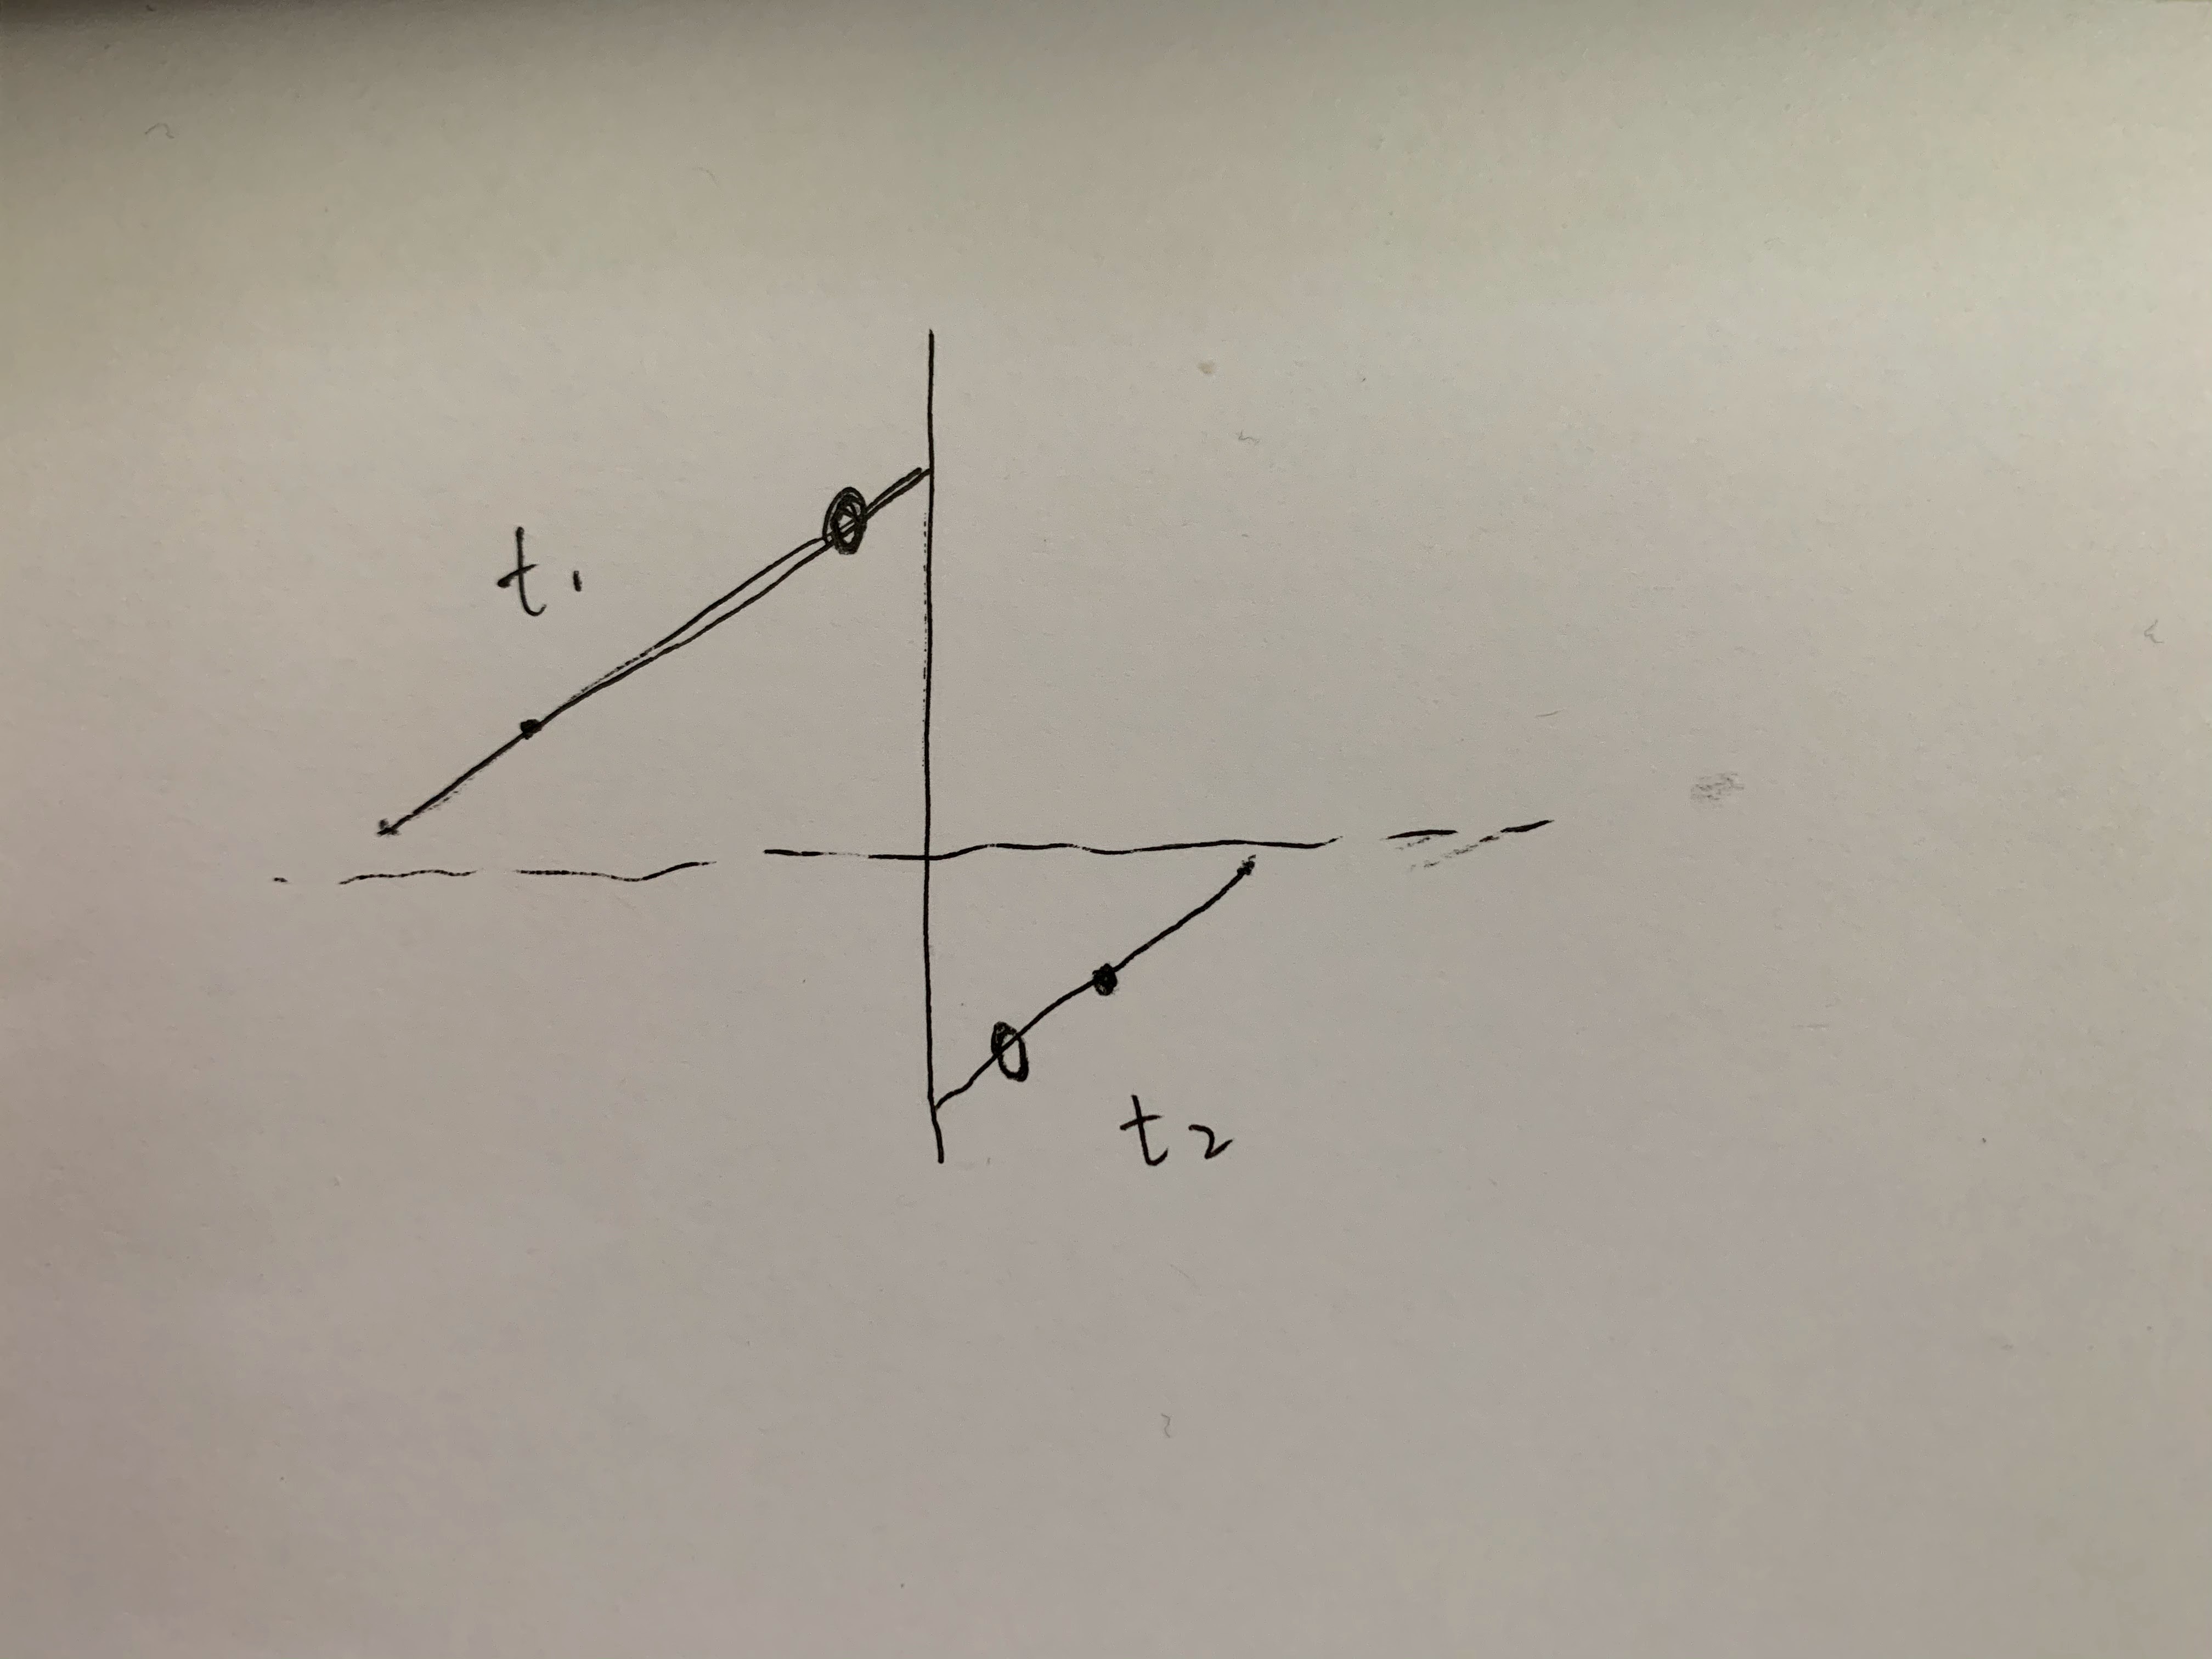 t₁
t₂